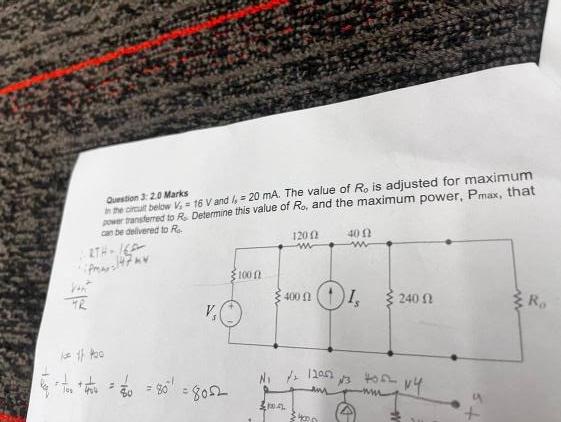 Question 3: 2.0 Marks
In the circuit below Vs = 16 V and Is = 20 mA. The value of Ro is adjusted for maximum
power transferred to Ro. Determine this value of Ro, and the maximum power, Pmax, that
can be delivered to Ro.
RTH =
Pmax =
4R
120 Ω 40 Ω
100 Ω
400 Ω
Is
240 Ω
Ro
Vs
+
-
100 // 400
1/Req = 1/100 + 1/400 = 1/80 = 80⁻¹ = 80Ω
N1 N2 120Ω N3 40Ω N4
a
+
100Ω
400Ω